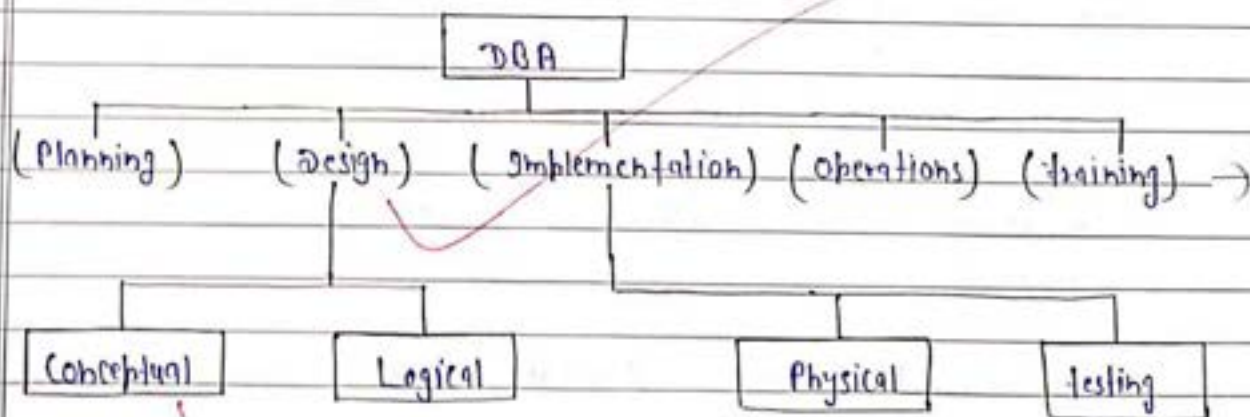 DBA
(Planning) (Design) (Implementation) (Operations) (training) →
Conceptual Logical Physical testing